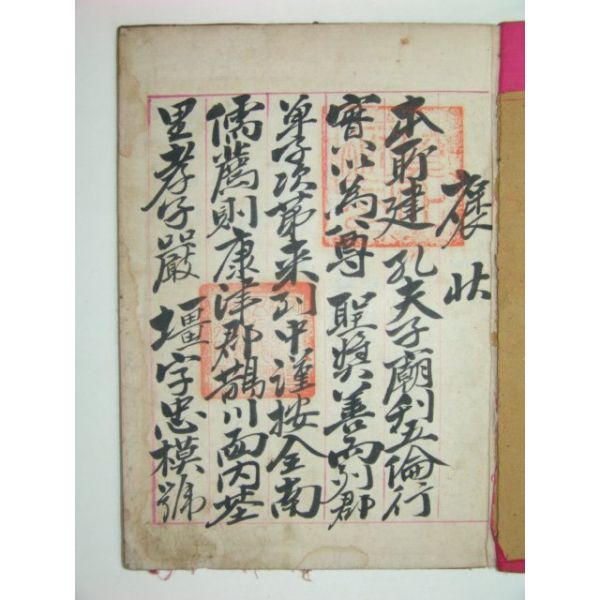 褒狀
本所建 孔夫子廟刊五倫行
實以爲尊 聖奬善而列郡
單子次第來到中謹按全南
儒薦則康津郡鵲川面內基
里孝子嚴 墻字忠模號